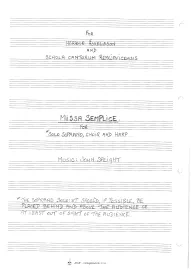 FOR
AND
SCHOLA CANTORUM REYKJAVICENSIS
MISSA SEMPLICE
FOR
*SOLO SOPRANO, CHOIR AND HARP
MUSIC: JOHN SPEIGHT
*THE SOPRANO SOLOIST SHOULD, IF POSSIBLE, BE
PLACED BEHIND AND ABOVE THE AUDIENCE OR
AT LEAST OUT OF SIGHT OF THE AUDIENCE